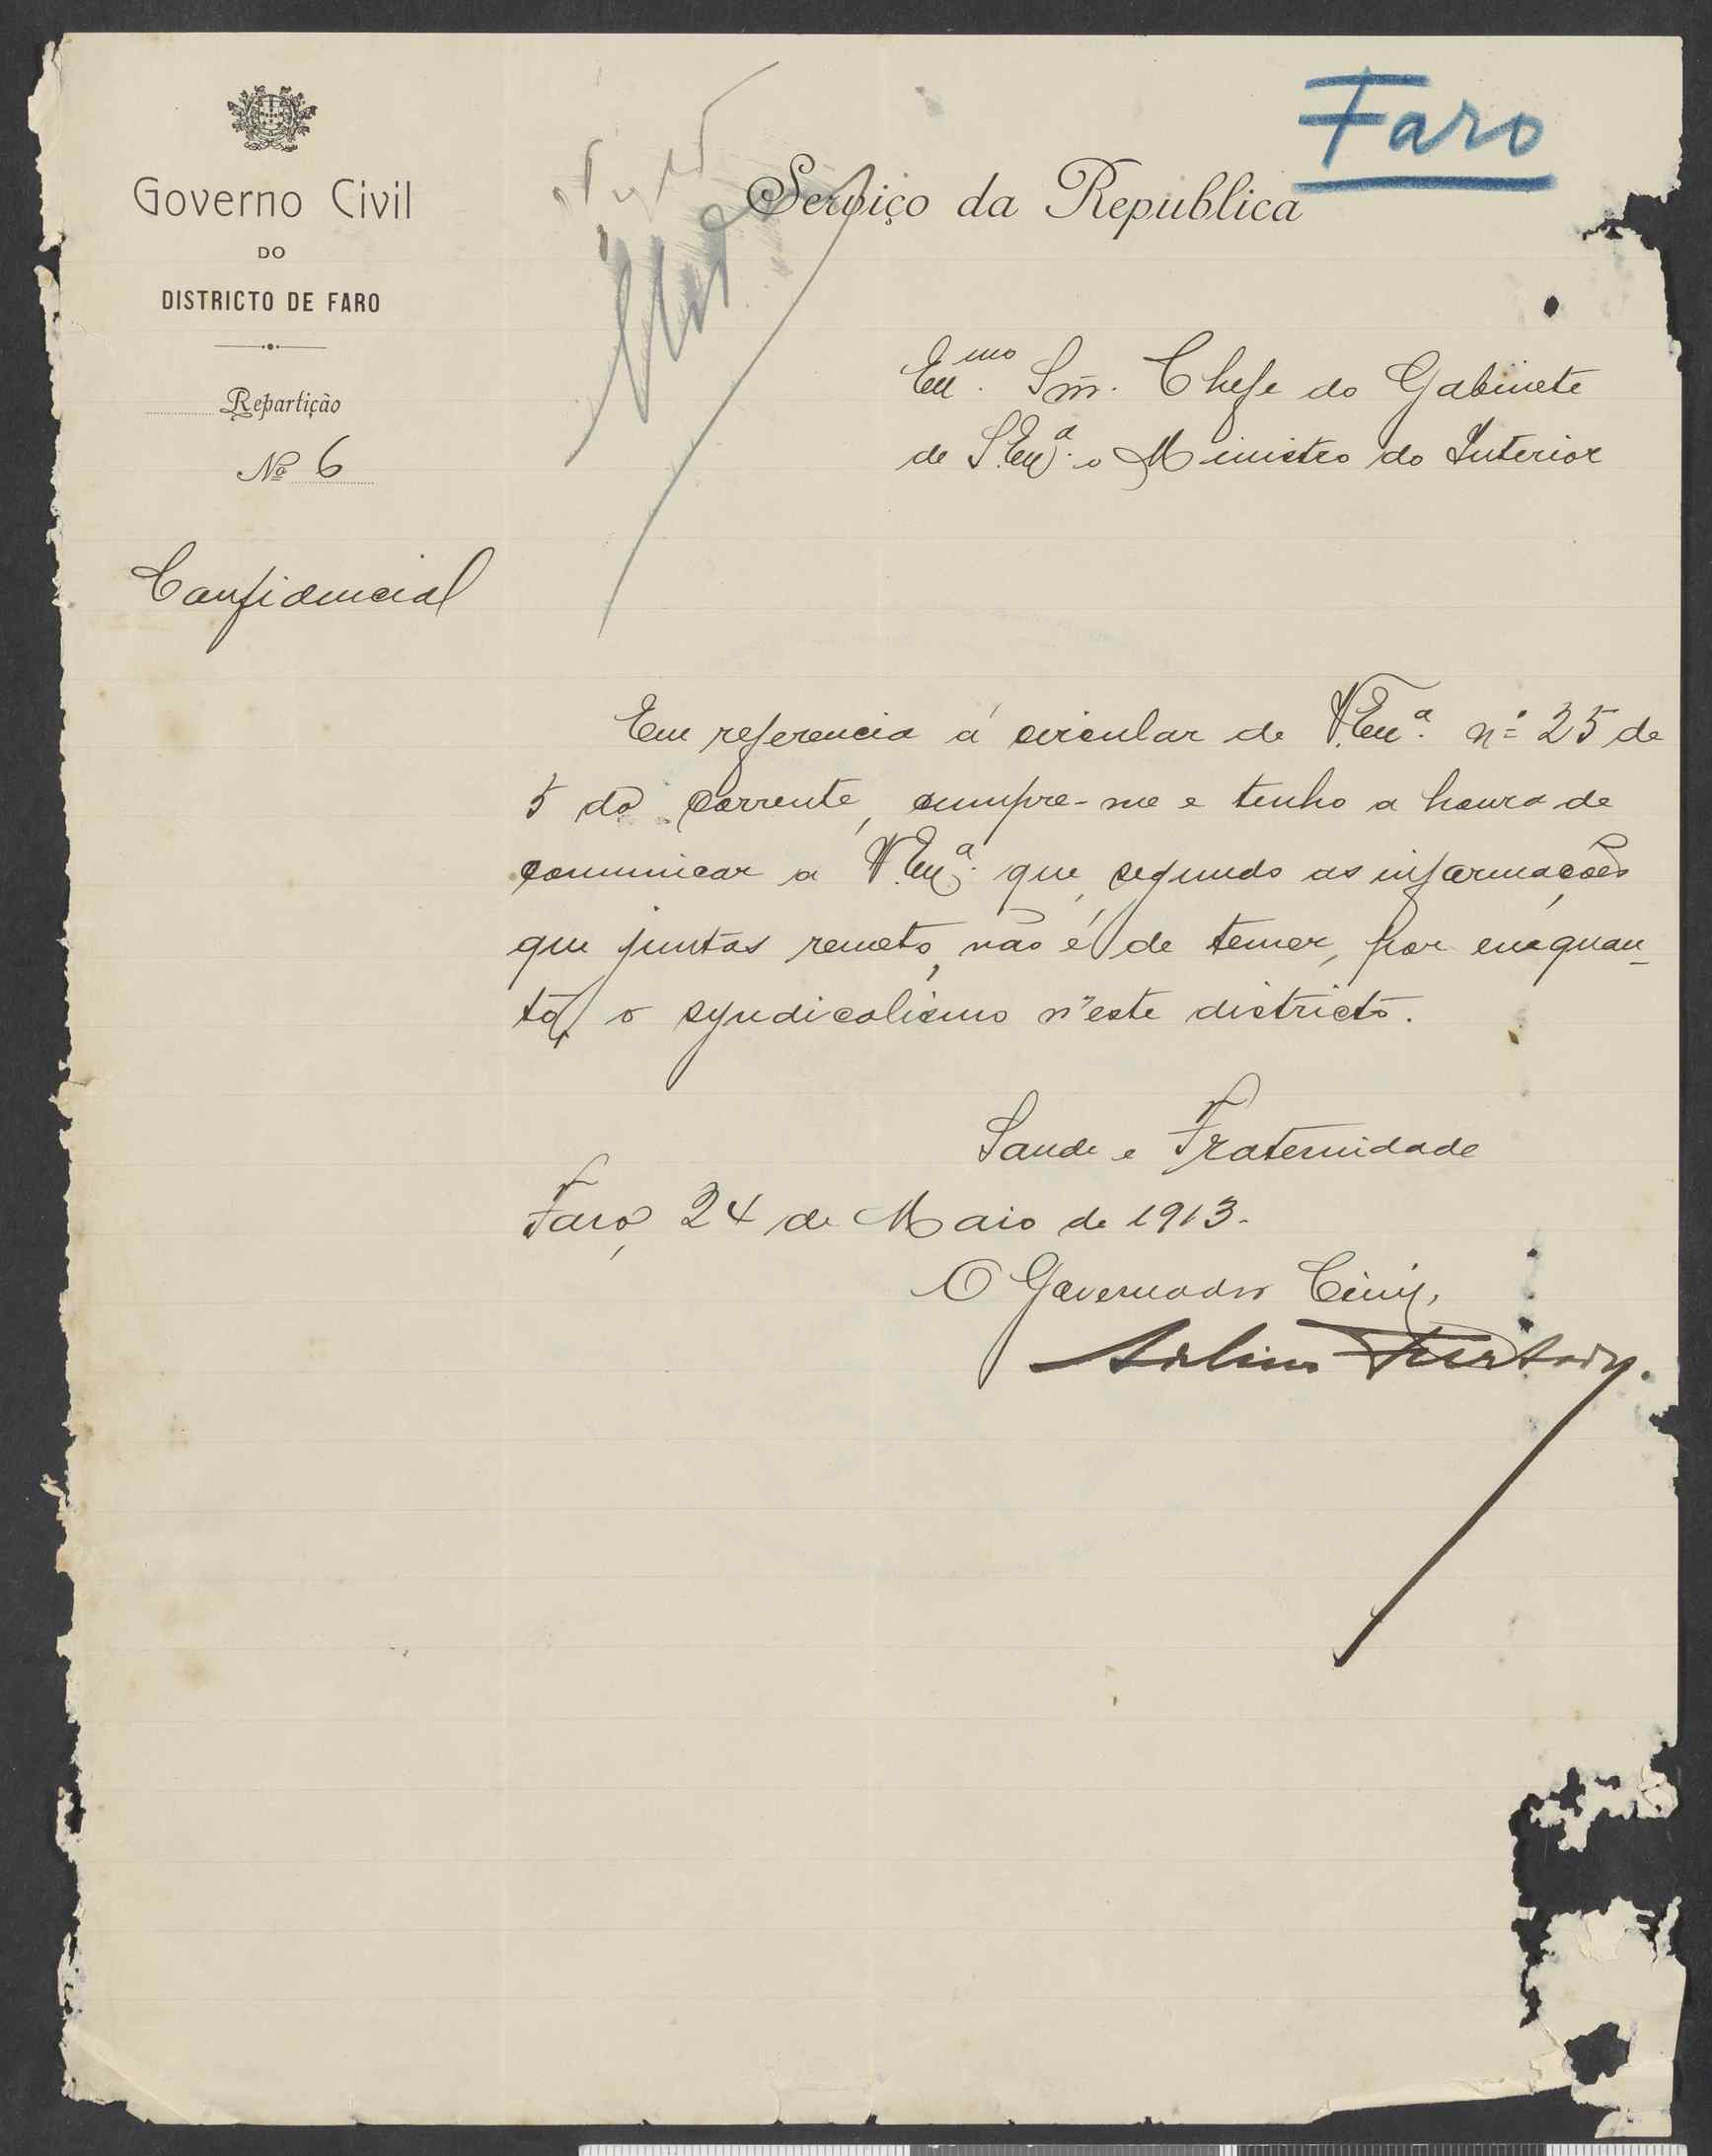 Faro
Governo Civil
DO
DISTRICTO DE FARO
Repartição
Nº 6
Confidencial
Serviço da Republica
Exmo. Snr. Chefe do Gabinete
de S. Exª. o Ministro do Interior
Em referencia á circular de V. Exª. nº 25 de
5 do corrente, cumpre-me e tenho a honra de
comunicar a V. Exª. que, segundo as informações
que juntas remeto, não é de temer, por emquan-
to, o syndicalismo n'este districto.
Saude e Fraternidade
Faro, 24 de Maio de 1913.
O Governador Civil,
Adelino Furtado.